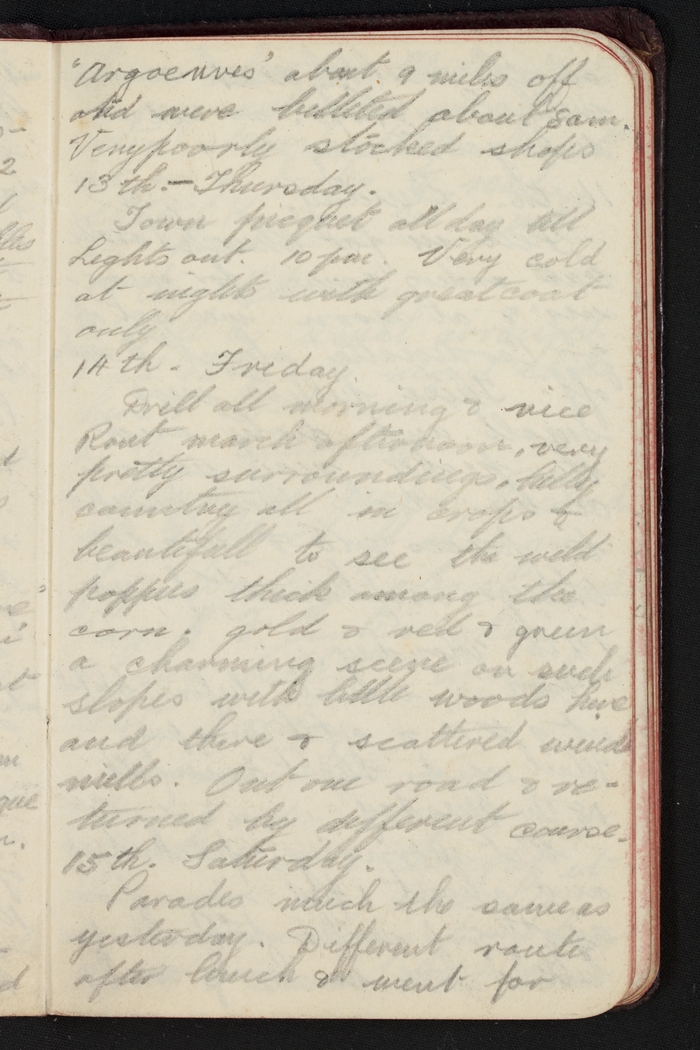 "Argoeuves' about 9 miles off
and were billeted about 8am.
Very poorly stocked shops
13th.- Thursday.
Town picquet all day till
Lights out. 10 pm. Very cold
at nights with greatcoat
only
14th. Friday.
Drill all morning & nice
Rout march afternoon, very
pretty surroundings, hilly
country all in crops &
beautifull to see the wild
poppies thick among the
corn. gold & red & green
a charming scene on such
slopes with little woods here
and there & scattered wind
mills. Out one road & re-
turned by different course.
15th. Saturday.
Parades much the same as
yesterday. Different route
after lunch & went for